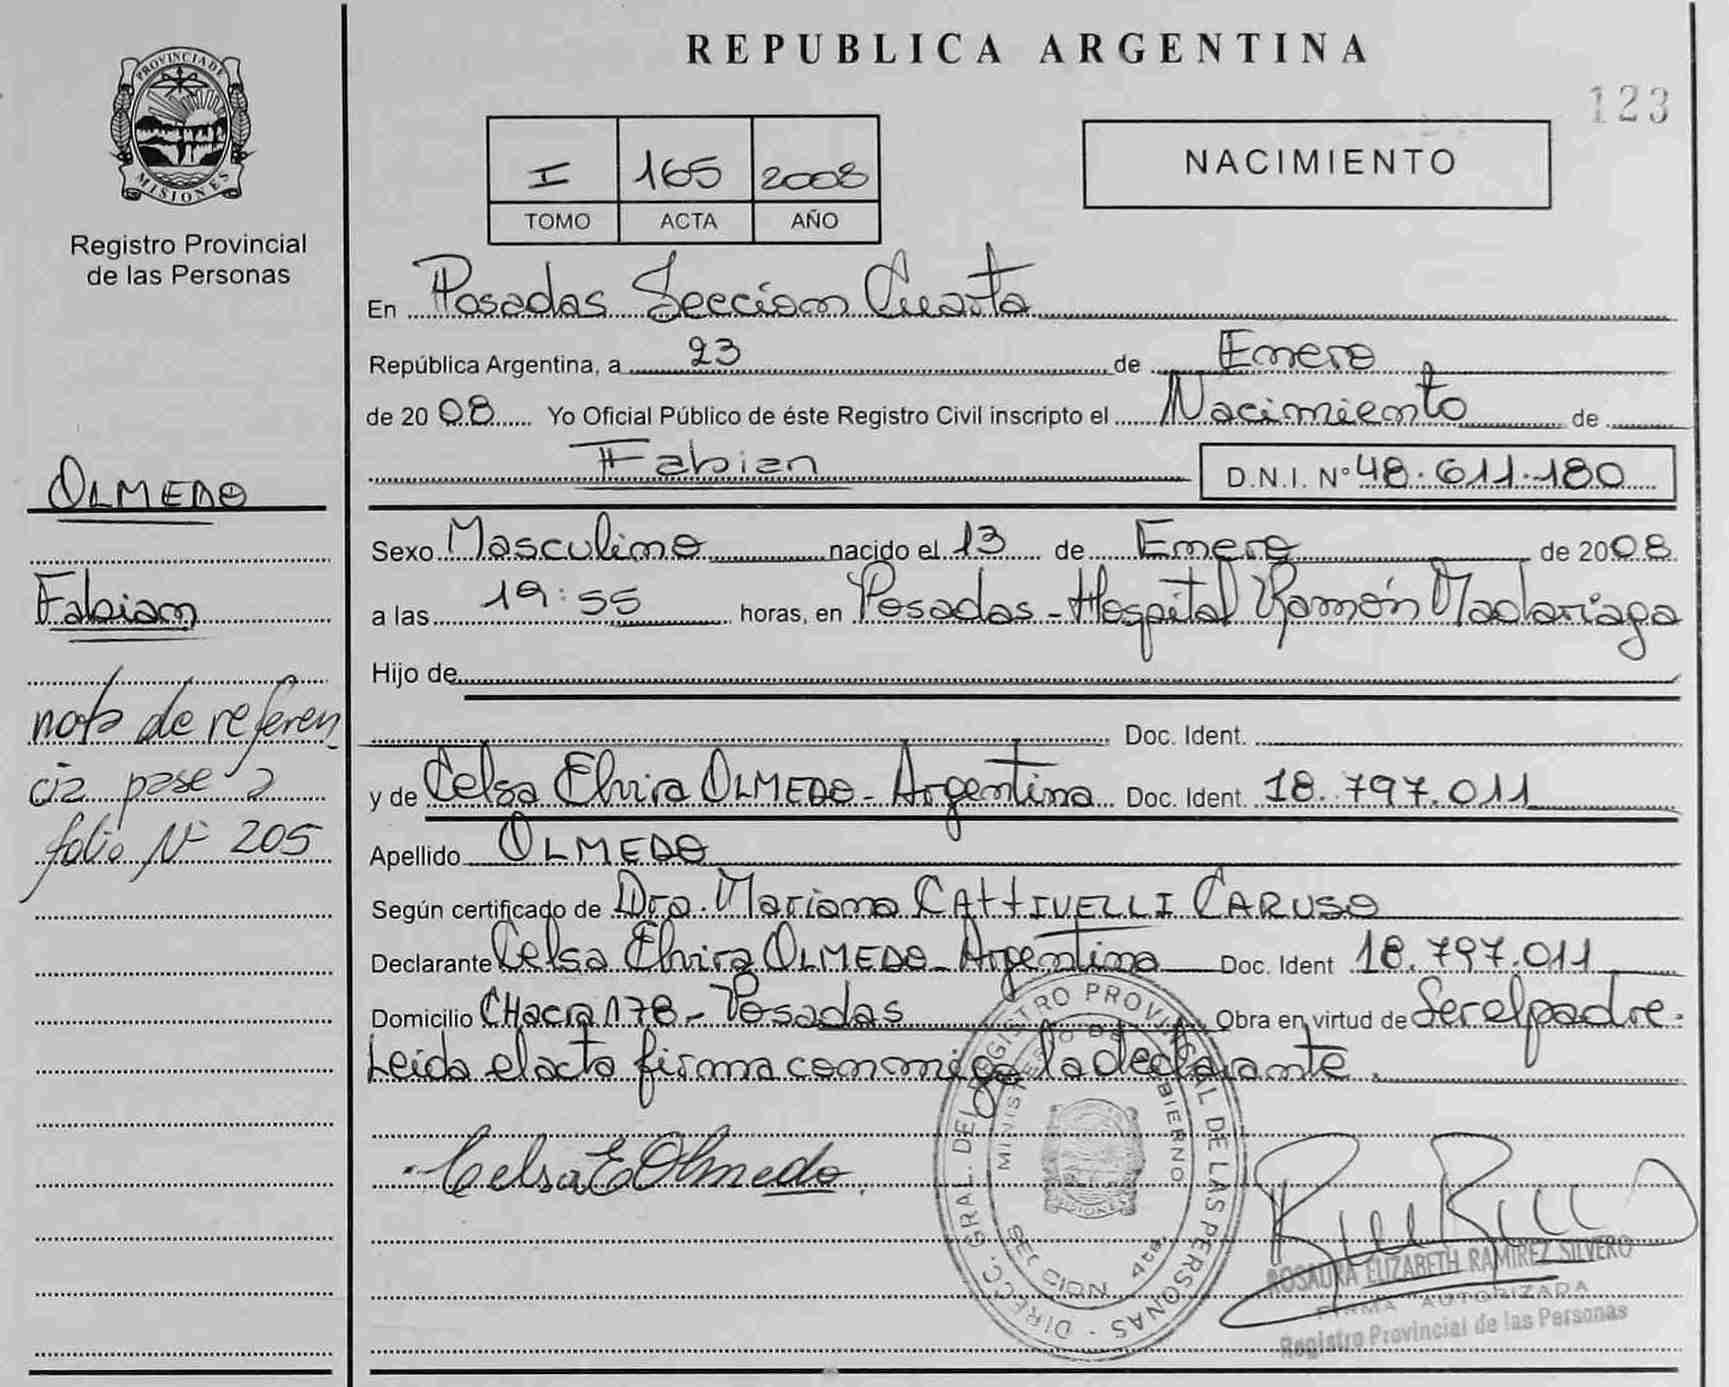 PROVINCIA DE
MISIONES
Registro Provincial
de las Personas
OLMEDO
Fabian
nota de referen
cia pase a
folio Nº 205
REPUBLICA ARGENTINA
123
I 165 2008
TOMO ACTA AÑO
NACIMIENTO
En Posadas Seccion Cuarta
República Argentina, a 23 de Enero
de 2008 Yo Oficial Público de éste Registro Civil inscripto el Nacimiento de
Fabian D.N.I. Nº 48.611.180
Sexo Masculino nacido el 13 de Enero de 2008
a las 19:55 horas, en Posadas - Hospital Ramón Madariaga
Hijo de
Doc. Ident.
y de Celsa Elvira OLMEDO - Argentina Doc. Ident. 18.797.011
Apellido OLMEDO
Según certificado de Dra. Mariana CATTIVELLI CARUSO
Declarante Celsa Elvira OLMEDO - Argentina Doc. Ident 18.797.011
Domicilio CHacra 178 - Posadas Obra en virtud de Ser el padre.
Leida el acta firma conmigo la declarante.
Celsa E Olmedo.
DIRECC. GRAL. DEL REGISTRO PROVINCIAL DE LAS PERSONAS -
MINISTERIO DE GOBIERNO
SECCION 4ta.
MISIONES
ROSAURA ELIZABETH RAMIREZ SILVERO
FIRMA AUTORIZADA
Registro Provincial de las Personas